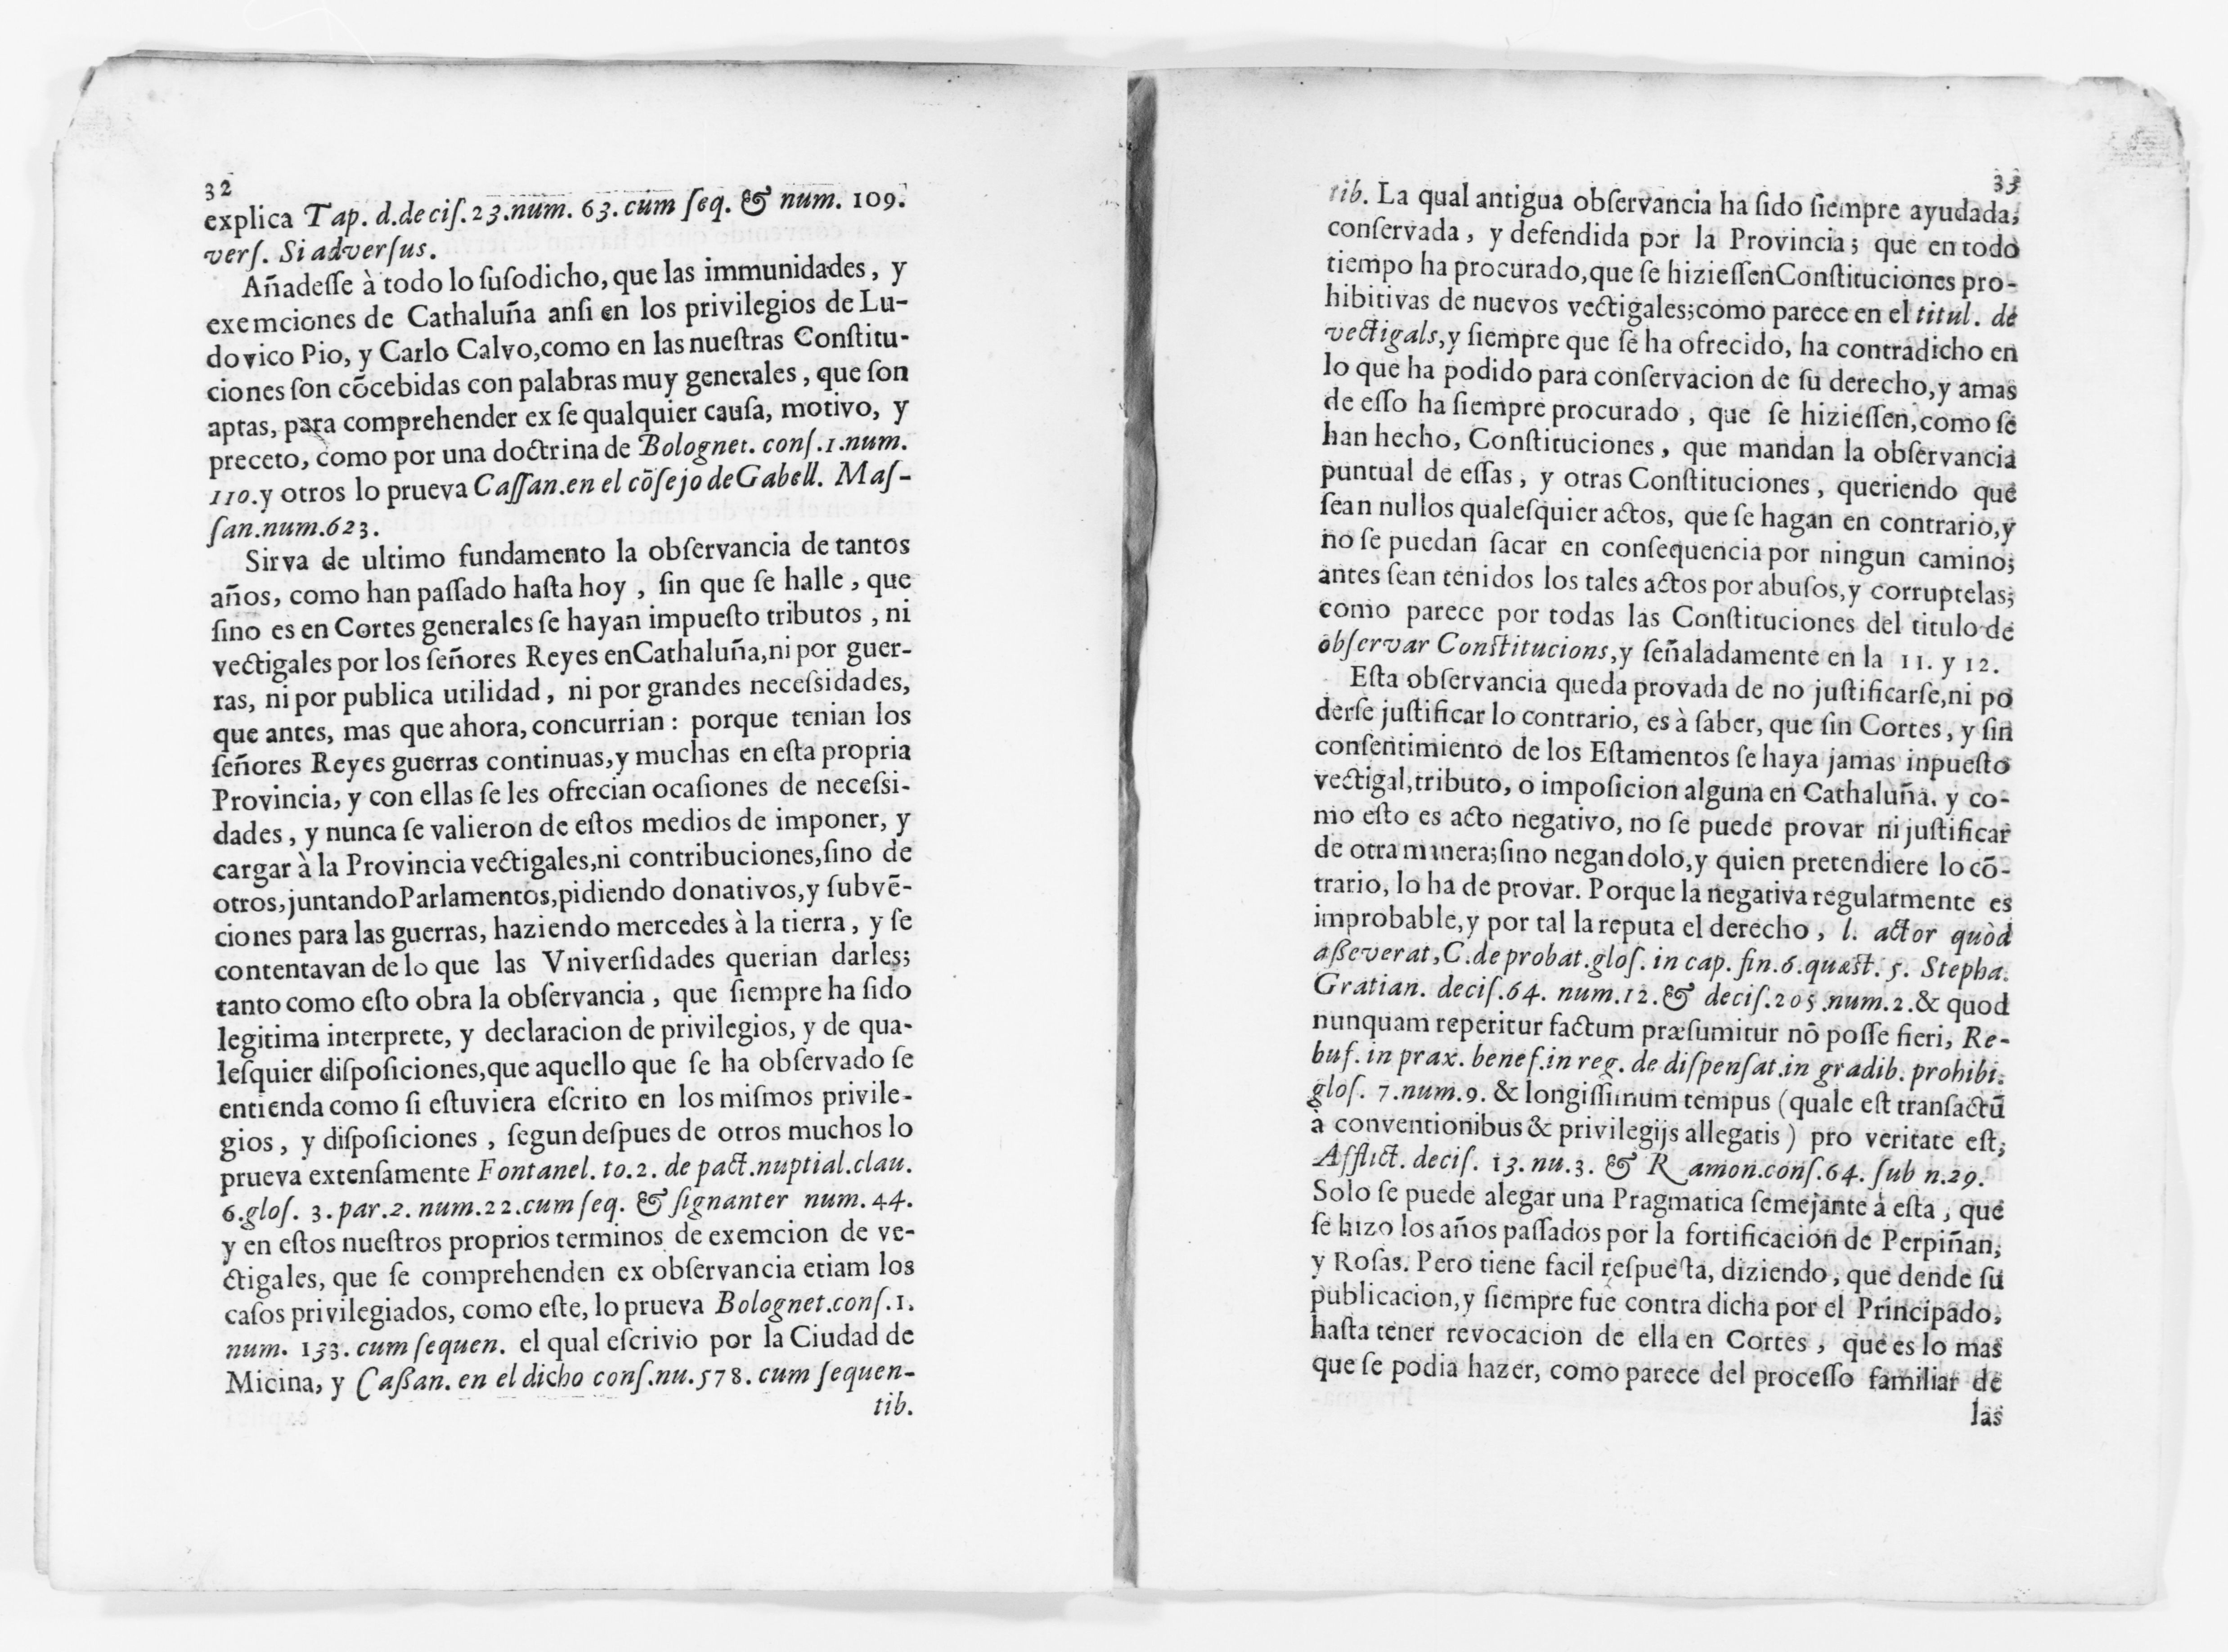 32
explica Tap. d. deciſ. 23. num. 63. cum ſeq. & num. 109.
verſ. Si adverſus.
Añadeſſe à todo lo ſuſodicho, que las immunidades, y
exemciones de Cathaluña anſi en los privilegios de Lu-
dovico Pio, y Carlo Calvo, como en las nueſtras Conſtitu-
ciones ſon cõcebidas con palabras muy generales, que ſon
aptas, para comprehender ex ſe qualquier cauſa, motivo, y
preceto, como por una doctrina de Bolognet. conſ. 1. num.
110. y otros lo prueva Caſſan. en el cõſejo de Gabell. Maſ-
ſan. num. 623.
Sirva de ultimo fundamento la obſervancia de tantos
años, como han paſſado haſta hoy, ſin que ſe halle, que
ſino es en Cortes generales ſe hayan impueſto tributos, ni
vectigales por los ſeñores Reyes en Cathaluña, ni por guer-
ras, ni por publica utilidad, ni por grandes neceſsidades,
que antes, mas que ahora, concurrian: porque tenian los
ſeñores Reyes guerras continuas, y muchas en eſta propria
Provincia, y con ellas ſe les ofrecian ocaſiones de neceſsi-
dades, y nunca ſe valieron de eſtos medios de imponer, y
cargar à la Provincia vectigales, ni contribuciones, ſino de
otros, juntando Parlamentos, pidiendo donativos, y ſubvẽ-
ciones para las guerras, haziendo mercedes à la tierra, y ſe
contentavan de lo que las Vniverſidades querian darles;
tanto como eſto obra la obſervancia, que ſiempre ha ſido
legitima interprete, y declaracion de privilegios, y de qua-
leſquier diſpoſiciones, que aquello que ſe ha obſervado ſe
entienda como ſi eſtuviera eſcrito en los miſmos privile-
gios, y diſpoſiciones, ſegun deſpues de otros muchos lo
prueva extenſamente Fontanel. to. 2. de pact. nuptial. clau.
6. gloſ. 3. par. 2. num. 22. cum ſeq. & ſignanter num. 44.
y en eſtos nueſtros proprios terminos de exemcion de ve-
ctigales, que ſe comprehenden ex obſervancia etiam los
caſos privilegiados, como eſte, lo prueva Bolognet. conſ. 1.
num. 133. cum ſequen. el qual eſcrivio por la Ciudad de
Micina, y Caßan. en el dicho conſ. nu. 578. cum ſequen-
tib.
33
tib. La qual antigua obſervancia ha ſido ſiempre ayudada,
conſervada, y defendida por la Provincia; que en todo
tiempo ha procurado, que ſe hizieſſen Conſtituciones pro-
hibitivas de nuevos vectigales; como parece en el titul. de
vectigals, y ſiempre que ſe ha ofrecido, ha contradicho en
lo que ha podido para conſervacion de ſu derecho, y amas
de eſſo ha ſiempre procurado, que ſe hizieſſen, como ſe
han hecho, Conſtituciones, que mandan la obſervancia
puntual de eſſas, y otras Conſtituciones, queriendo que
ſean nullos qualeſquier actos, que ſe hagan en contrario, y
no ſe puedan ſacar en conſequencia por ningun camino;
antes ſean tenidos los tales actos por abuſos, y corruptelas;
como parece por todas las Conſtituciones del titulo de
obſervar Conſtitucions, y ſeñaladamente en la 11. y 12.
Eſta obſervancia queda provada de no juſtificarſe, ni po
derſe juſtificar lo contrario, es à ſaber, que ſin Cortes, y ſin
conſentimiento de los Eſtamentos ſe haya jamas inpueſto
vectigal, tributo, o impoſicion alguna en Cathaluña. y co-
mo eſto es acto negativo, no ſe puede provar ni juſtificar
de otra manera; ſino negandolo, y quien pretendiere lo cõ-
trario, lo ha de provar. Porque la negativa regularmente es
improbable, y por tal la reputa el derecho, l. actor quòd
aßeverat, C. de probat. gloſ. in cap. fin. 6. quæſt. 5. Stepha.
Gratian. deciſ. 64. num. 12. & deciſ. 205. num. 2. & quod
nunquam reperitur factum præſumitur nõ poſſe fieri, Re-
buf. in prax. benef. in reg. de diſpenſat. in gradib. prohibi.
gloſ. 7. num. 9. & longiſſimum tempus (quale eſt tranſactũ
à conventionibus & privilegijs allegatis) pro veritate eſt,
Afflict. deciſ. 13. nu. 3. & Ramon. conſ. 64. ſub n. 29.
Solo ſe puede alegar una Pragmatica ſemejante à eſta, que
ſe hizo los años paſſados por la fortificacion de Perpiñan,
y Roſas. Pero tiene facil reſpueſta, diziendo, que dende ſu
publicacion, y ſiempre fue contradicha por el Principado,
haſta tener revocacion de ella en Cortes, que es lo mas
que ſe podia hazer, como parece del proceſſo familiar de
las